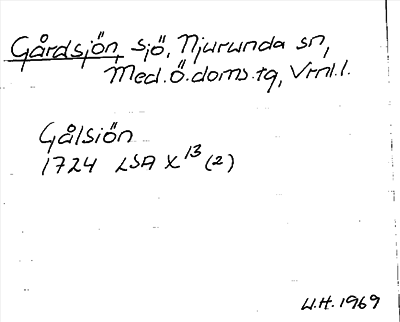 Gårdsjön, sjö, Njurunda sn,
Med.ö.doms.tg, Vrnl.l.
Gålsiön
1724 LSA X 13 (2)
W.H. 1969